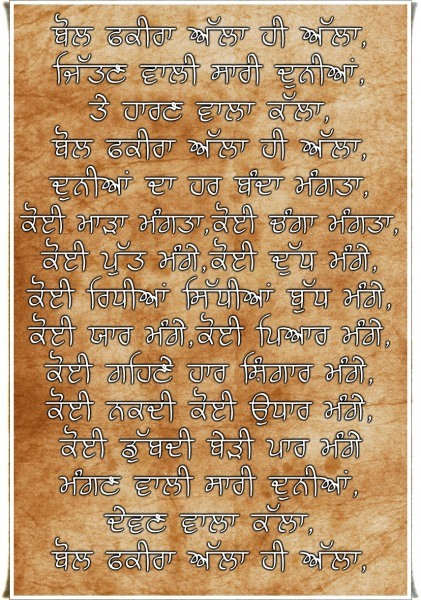 ਬੋਲ ਫਕੀਰਾ ਅੱਲਾ ਹੀ ਅੱਲਾ,
ਜਿੱਤਣ ਵਾਲੀ ਸਾਰੀ ਦੁਨੀਆਂ,
ਤੇ ਹਾਰਣ ਵਾਲਾ ਕੱਲਾ,
ਬੋਲ ਫਕੀਰਾ ਅੱਲਾ ਹੀ ਅੱਲਾ,
ਦੁਨੀਆਂ ਦਾ ਹਰ ਬੰਦਾ ਮੰਗਤਾ,
ਕੋਈ ਮਾੜਾ ਮੰਗਤਾ,ਕੋਈ ਚੰਗਾ ਮੰਗਤਾ,
ਕੋਈ ਪੁੱਤ ਮੰਗੇ,ਕੋਈ ਦੁੱਧ ਮੰਗੇ,
ਕੋਈ ਰਿਧੀਆਂ ਸਿੱਧੀਆਂ ਬੁੱਧ ਮੰਗੇ,
ਕੋਈ ਯਾਰ ਮੰਗੇ,ਕੋਈ ਪਿਆਰ ਮੰਗੇ,
ਕੋਈ ਗਹਿਣੇ ਹਾਰ ਸ਼ਿੰਗਾਰ ਮੰਗੇ,
ਕੋਈ ਨਕਦੀ ਕੋਈ ਉਧਾਰ ਮੰਗੇ,
ਕੋਈ ਡੁੱਬਦੀ ਬੇੜੀ ਪਾਰ ਮੰਗੇ
ਮੰਗਣ ਵਾਲੀ ਸਾਰੀ ਦੁਨੀਆਂ,
ਦੇਵਣ ਵਾਲਾ ਕੱਲਾ,
ਬੋਲ ਫਕੀਰਾ ਅੱਲਾ ਹੀ ਅੱਲਾ,